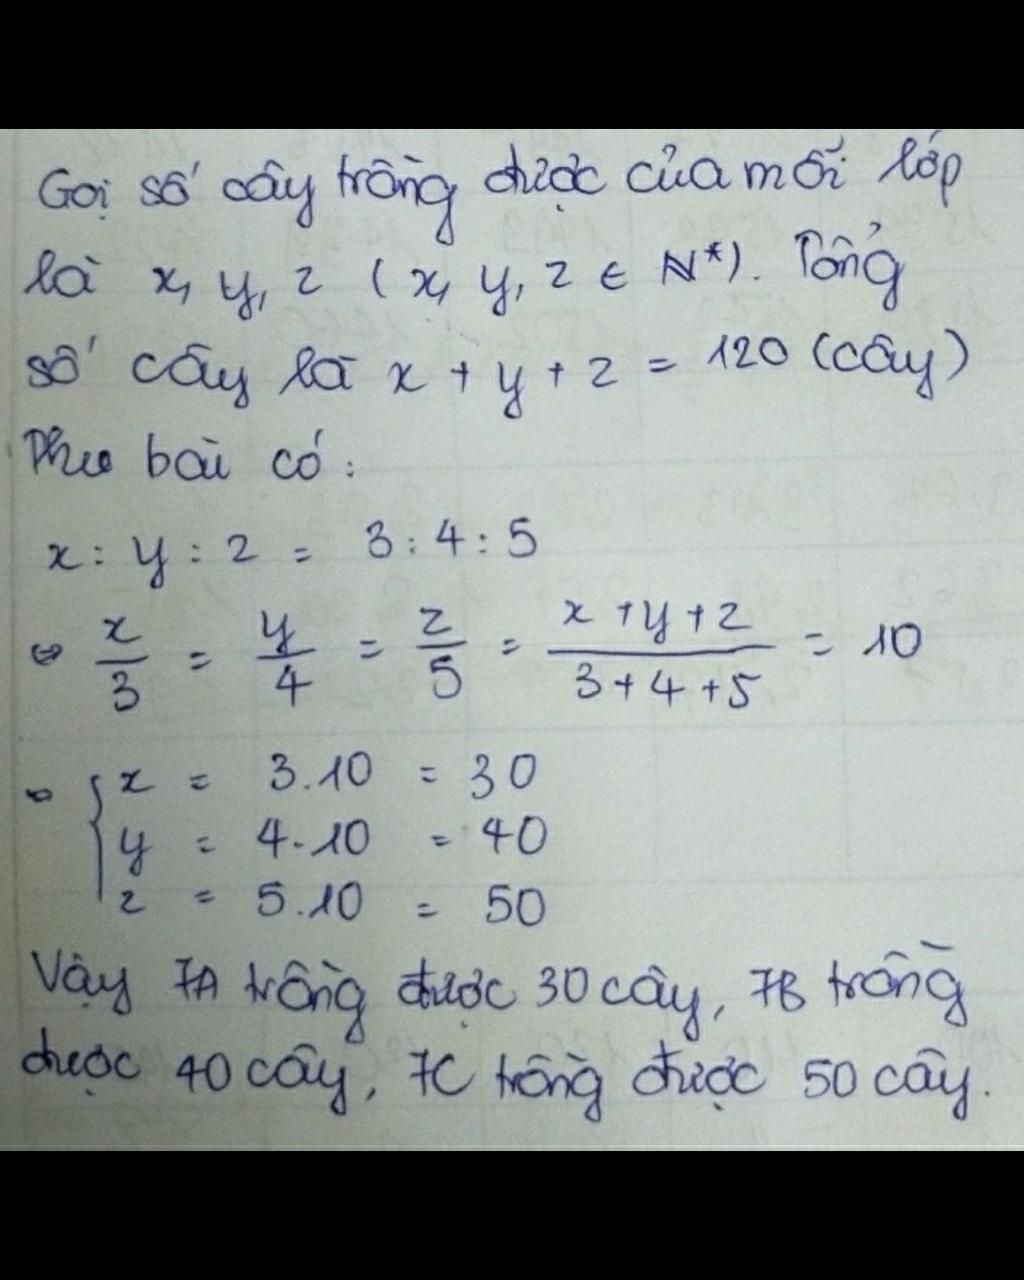 Gọi số cây trồng được của mỗi lớp
là x, y, z ( x, y, z ∈ N*). Tổng
số cây là x + y + z = 120 (cây)
Theo bài có :
x : y : z = 3 : 4 : 5
⇔ x/3 = y/4 = z/5 = (x + y + z)/(3 + 4 + 5) = 10
⇒ { x = 3.10 = 30
y = 4.10 = 40
z = 5.10 = 50
Vậy 7A trồng được 30 cây, 7B trồng
được 40 cây, 7C trồng được 50 cây.